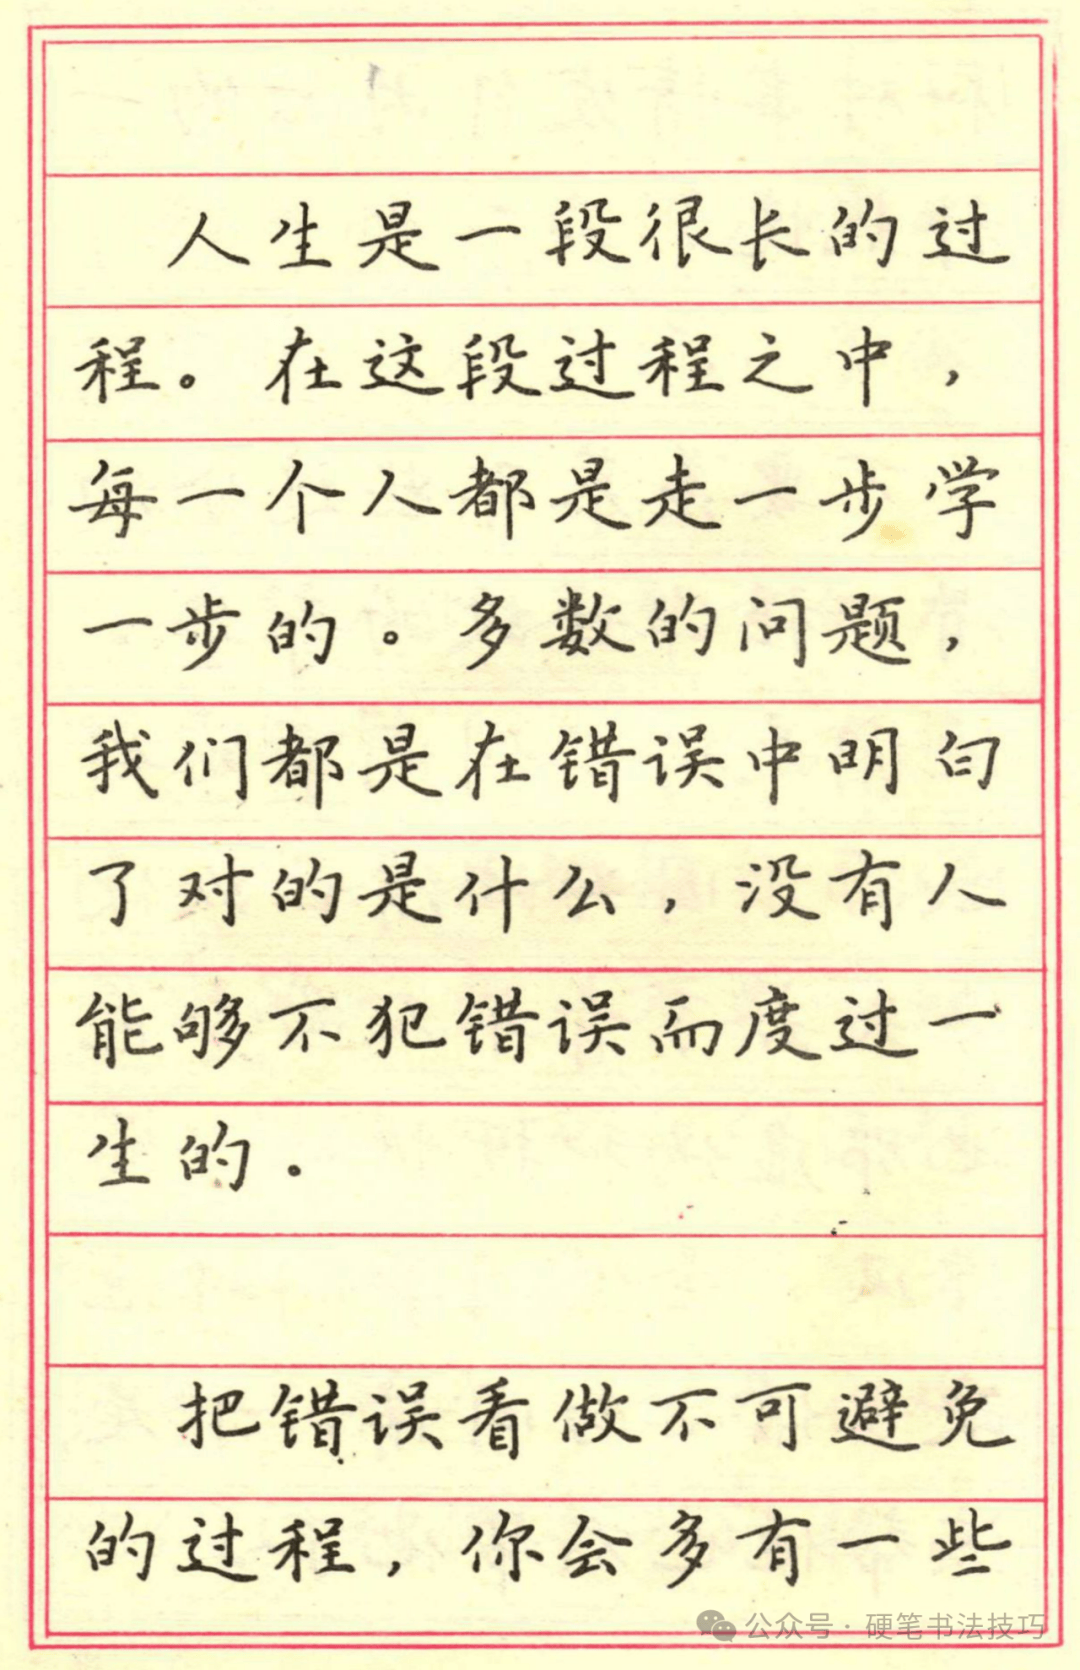 人生是一段很长的过
程。在这段过程之中，
每一个人都是走一步学
一步的。多数的问题，
我们都是在错误中明白
了对的是什么，没有人
能够不犯错误而度过一
生的.
把错误看做不可避免
的过程，你会多有一些
公众号·硬笔书法技巧